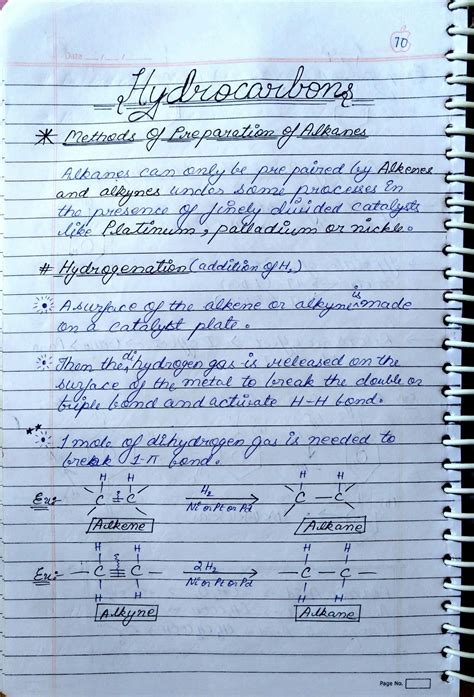 Date __/__/__
70
Hydrocarbons
* Methods of Preparation of Alkanes
Alkanes can only be prepaired by Alkenes
and alkynes under some processes in
the presence of finely divided catalysts
like Platinum, palladium or nickle.
# Hydrogenation (addition of H₂)
A surface of the alkene or alkyne is made
on a catalyst plate.
Then the dihydrogen gas is released on the
surface of the metal to break the double or
triple bond and activate H-H bond.
** 1 mole of dihydrogen gas is needed to
break 1-π bond.
H H H H
Ex:- C = C H₂ C — C
Ni or Pt or Pd
Alkene Alkane
H H H H
Ex:- — C ≡ C — 2H₂ — C — C —
Ni or Pt or Pd
H H H H
Alkyne Alkane
Page No.